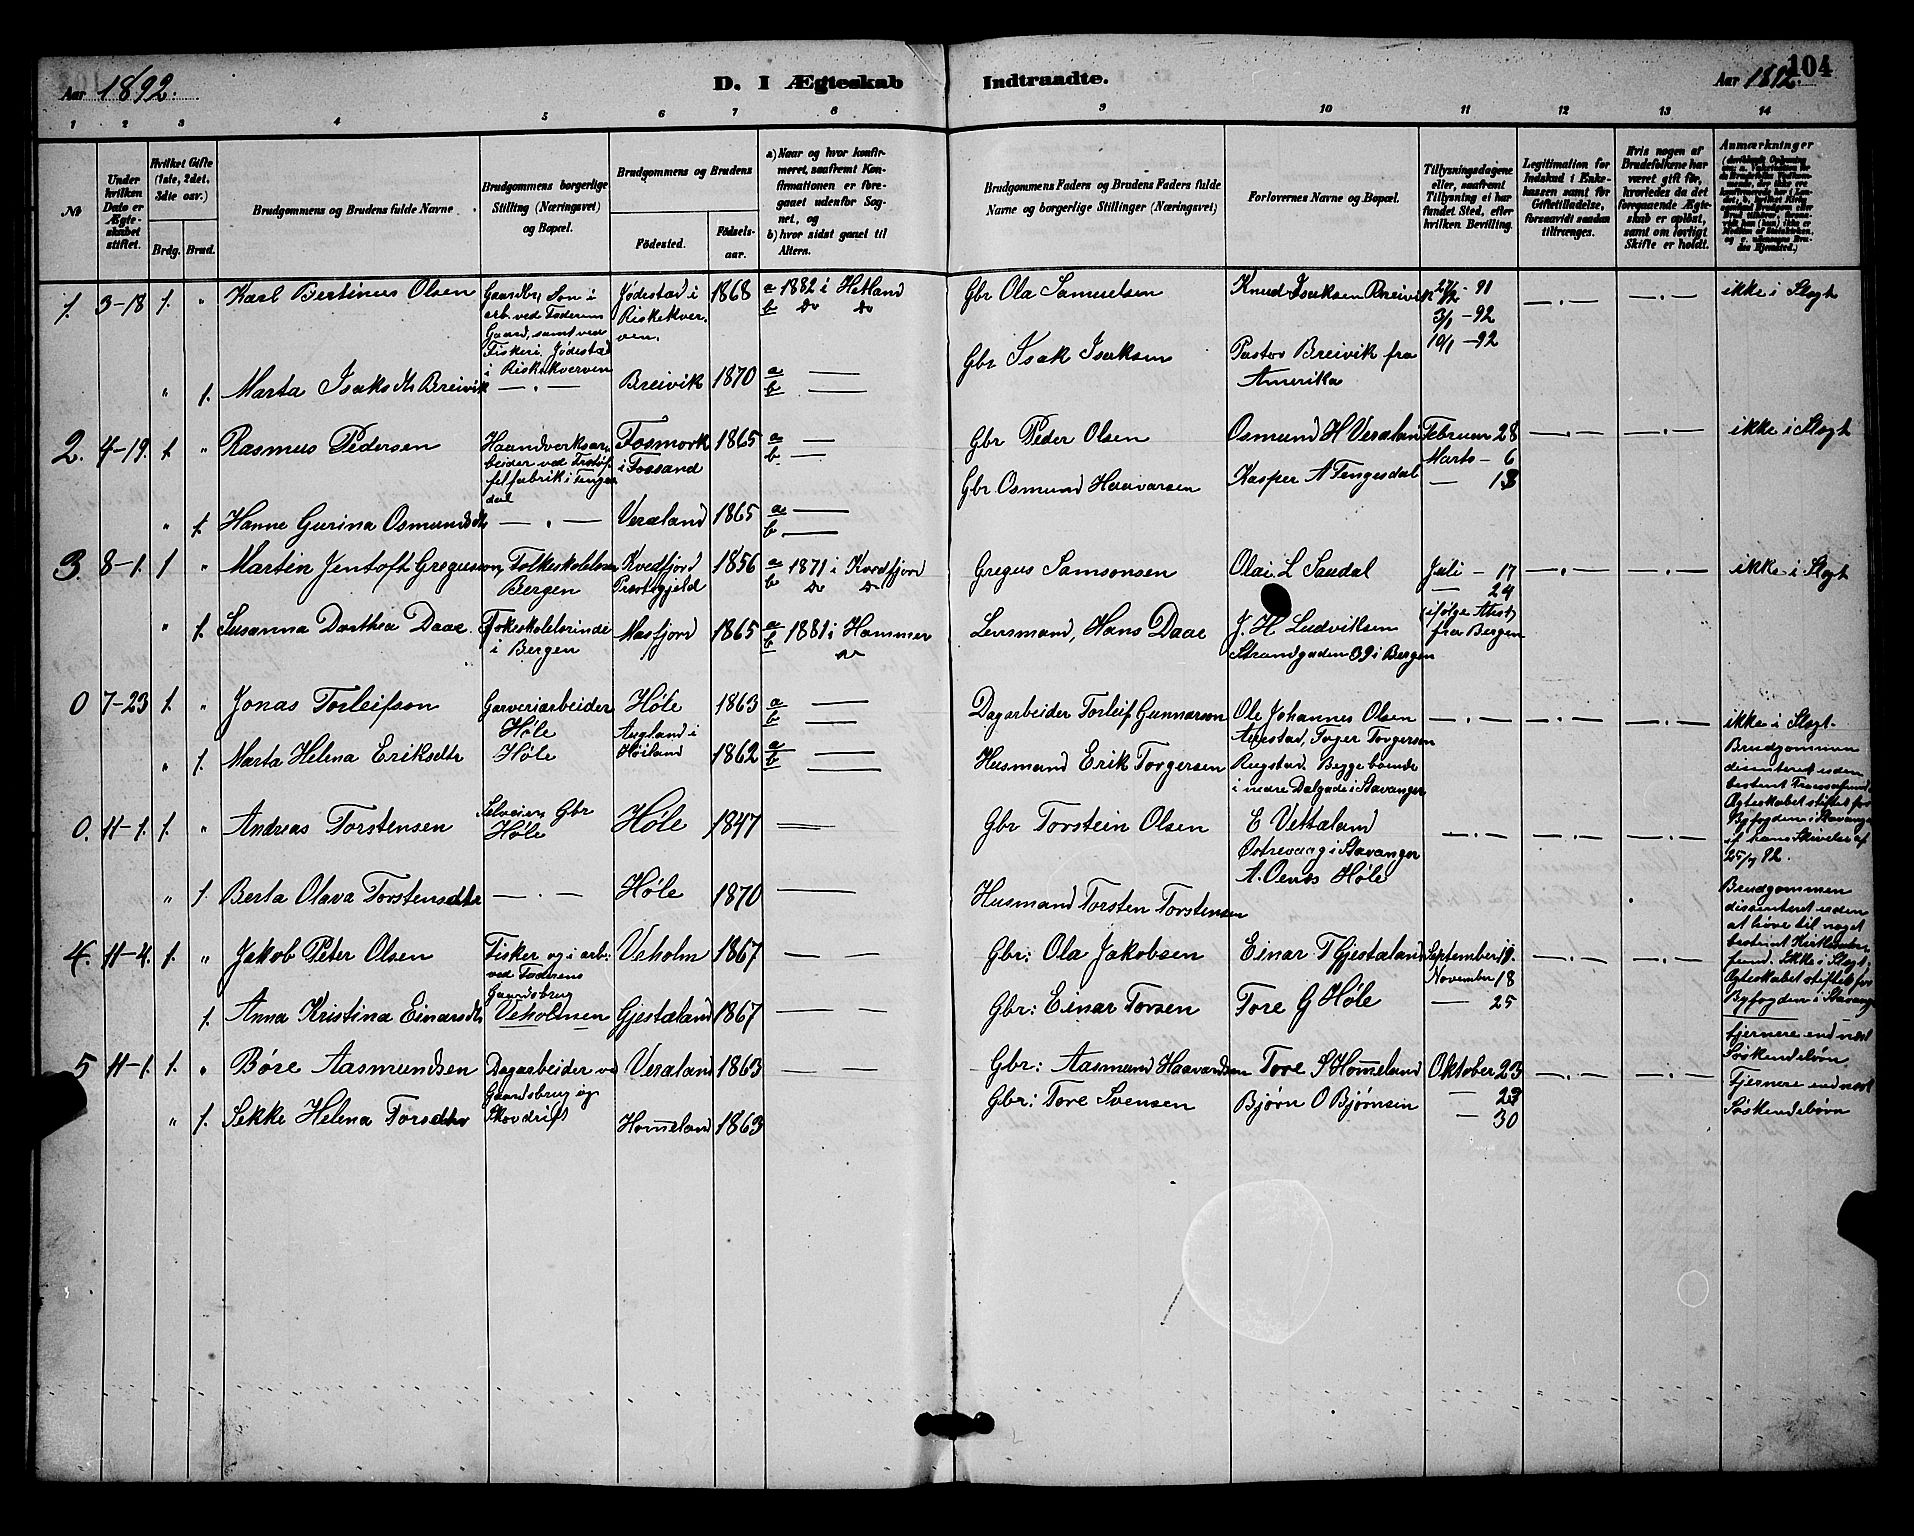 104
Aar 1892.
D. I Ægteskab Indtraadte.
Aar 1892.
1 2 3 4 5 6 7 8 9 10 11 12 13 14
No
Under hvilken Dato er Ægteskabet stiftet.
Hvilket Gifte (1ste, 2det, 3die osv.)
Brdg. Brud.
Brudgommens og Brudens fulde Navne
Brudgommens borgerlige Stilling (Næringsvei) og Bopæl.
Brudgommens og Brudens
Fødested.
Fødselsaar.
a) Naar og hvor konfirmeret, saafremt Konfirmationen er foregaaet udenfor Sognet, og
b) hvor sidst gaaet til Alters.
Brudgommens Faders og Brudens Faders fulde Navne og borgerlige Stillinger (Næringsvei)
Forlovernes Navne og Bopæl.
Tillysningsdagene eller, saafremt Tillysning ei har fundet Sted, efter hvilken Bevilling.
Legitimation for Indskud i Enkekassen samt for Giftetilladelse, forsaavidt saadan tiltrænges.
Hvis nogen af Brudefolkene har været gift før, hvorledes da det foregaaende Ægteskab er opløst, samt om lovligt Skifte er holdt.
Anmærkninger
1. 3-18 1. " Karl Bertinus Olsen
Gaardbr. Søn i arb. ved Faderens Gaard, samt ved Fiskeri. Jødestad i Riskekverven
Jødestad i Riskekverven.
1868
a 1882 i Hetland
b do do
Gbr Ola Samuelsen
Knud Isaksen Breivik
27/12 - 91
3/1 - 92
10/1 - 92
— . —
— . —
ikke i Slegt
" 1. Marta Isaksdtr Breivik
— . —
Breivik
1870
a —
b —
Gbr Isak Isaksen
Pastor Breivik fra Amerika
2. 4-19. 1 " Rasmus Pedersen
Haandverksarbeider ved fabrik i Tengesdal
Fosmork i Fossand
1865
a —
b. —
Gbr Peder Olsen
Osmund H Veraland
Februar 28
Marts - 6
— 13
— . —
— . —
ikke i Slegt
" 1. Hanne Gurina Osmundsdtr
— . —
Veraland
1865
a —
b —
Gbr Osmund Haavarsen
Kasper A Tengesdal
3. 8-1. 1 " Martin Jentoft Gregusson
Folkeskolelærer, Bergen
Kvedfjord Prestegjeld
1856
a 1871 i Kvedfjord
b do do
Gregus Samsonsen
Olai L Saudal
Juli - 17
— 24
(ifølge Attest fra Bergen
— . —
— . —
ikke i Slegt
" 1. Susanna Dorthea Daae.
Folkeskolelærinde i Bergen
Masfjord
1865
a 1881 i Hammer
b do
Lensmand, Hans Daae
J. H Ludviksen Strandgaden 39 i Bergen
0 7-23 1. " Jonas Torleifson
Garveriarbeider Høle
Høle
1863
a —
b —
Dagarbeider Torleif Gunnarson
Ole Johannes Olsen
— . —
— . —
— . —
ikke i Slegt.
" 1. Marta Helena Eriksdtr
Høle
Augland i Høiland
1862
a —
b —
Husmand Erik Torgersen
Torger Torgersen Rugstad. Begge boende i nedre Dalgade i Stavanger
Brudgommen disenteret uden bestemt Trossamfund. Ægteskabet stiftet for Byfogden i Stavanger if hans Skrivelse af 25/7 92.
0. 11-1. 1. " Andreas Torstensen
Selveier, Gbr Høle
Høle
1847
—
Gbr Torstein Olsen
E Vetteland Østrevaag i Stavanger
— . —
— . —
— . —
" 1. Berta Olava Torstensdtr
— . —
Høle
1870
—
Husmand Torsten Torstensen
A. Oenæs Høle
Brudgommen dissenteret uden at høre til noget bestemt Kirkesamfund. Ikke i Slegt. Ægteskabet stiftet for Byfogden i Stavanger
4. 11-4. 1. " Jakob Peter Olsen
Fisker og i arb: ved Faderens Gaardsbrug
Veholm
1867
— —
Gbr: Ola Jakobsen
Einar T Gjestaland
September 19.
November 18
— 25
— . —
— . —
fjernere end næst Søskendebørn
1. Anna Kristina Einarsdtr
Veholmen
Gjestaland
1867
— —
Gbr: Einar Torsen
Tore G Høle
5 11-1. 1. " Børe Aasmundsen
Dagarbeider ved Gaardsbrug og Skovdrift
Veraland
1863
— —
Gbr: Aasmund Haavardsen
Tore S Homeland
Oktober 23
— 23
— 30
— . —
— . —
Fjernere end næst Søskendebørn
" 1. Sekke Helena Torsdtr
Homeland
1863
Gbr: Tore Svensen
Bjørn O Bjørnsen